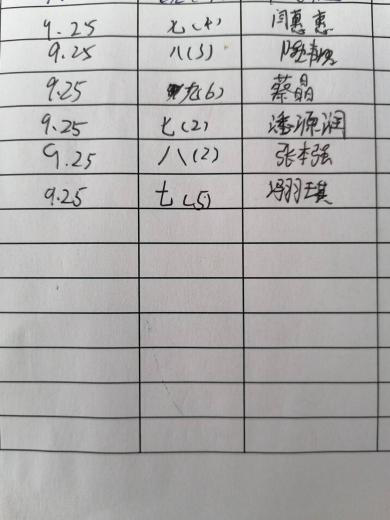 9.25 七(4) 闫惠惠
9.25 八(3)
9.25 九(6) 蔡晶
9.25 七(2) 潘源润
9.25 八(2) 张本强
9.25 七(5) 冯羽琪